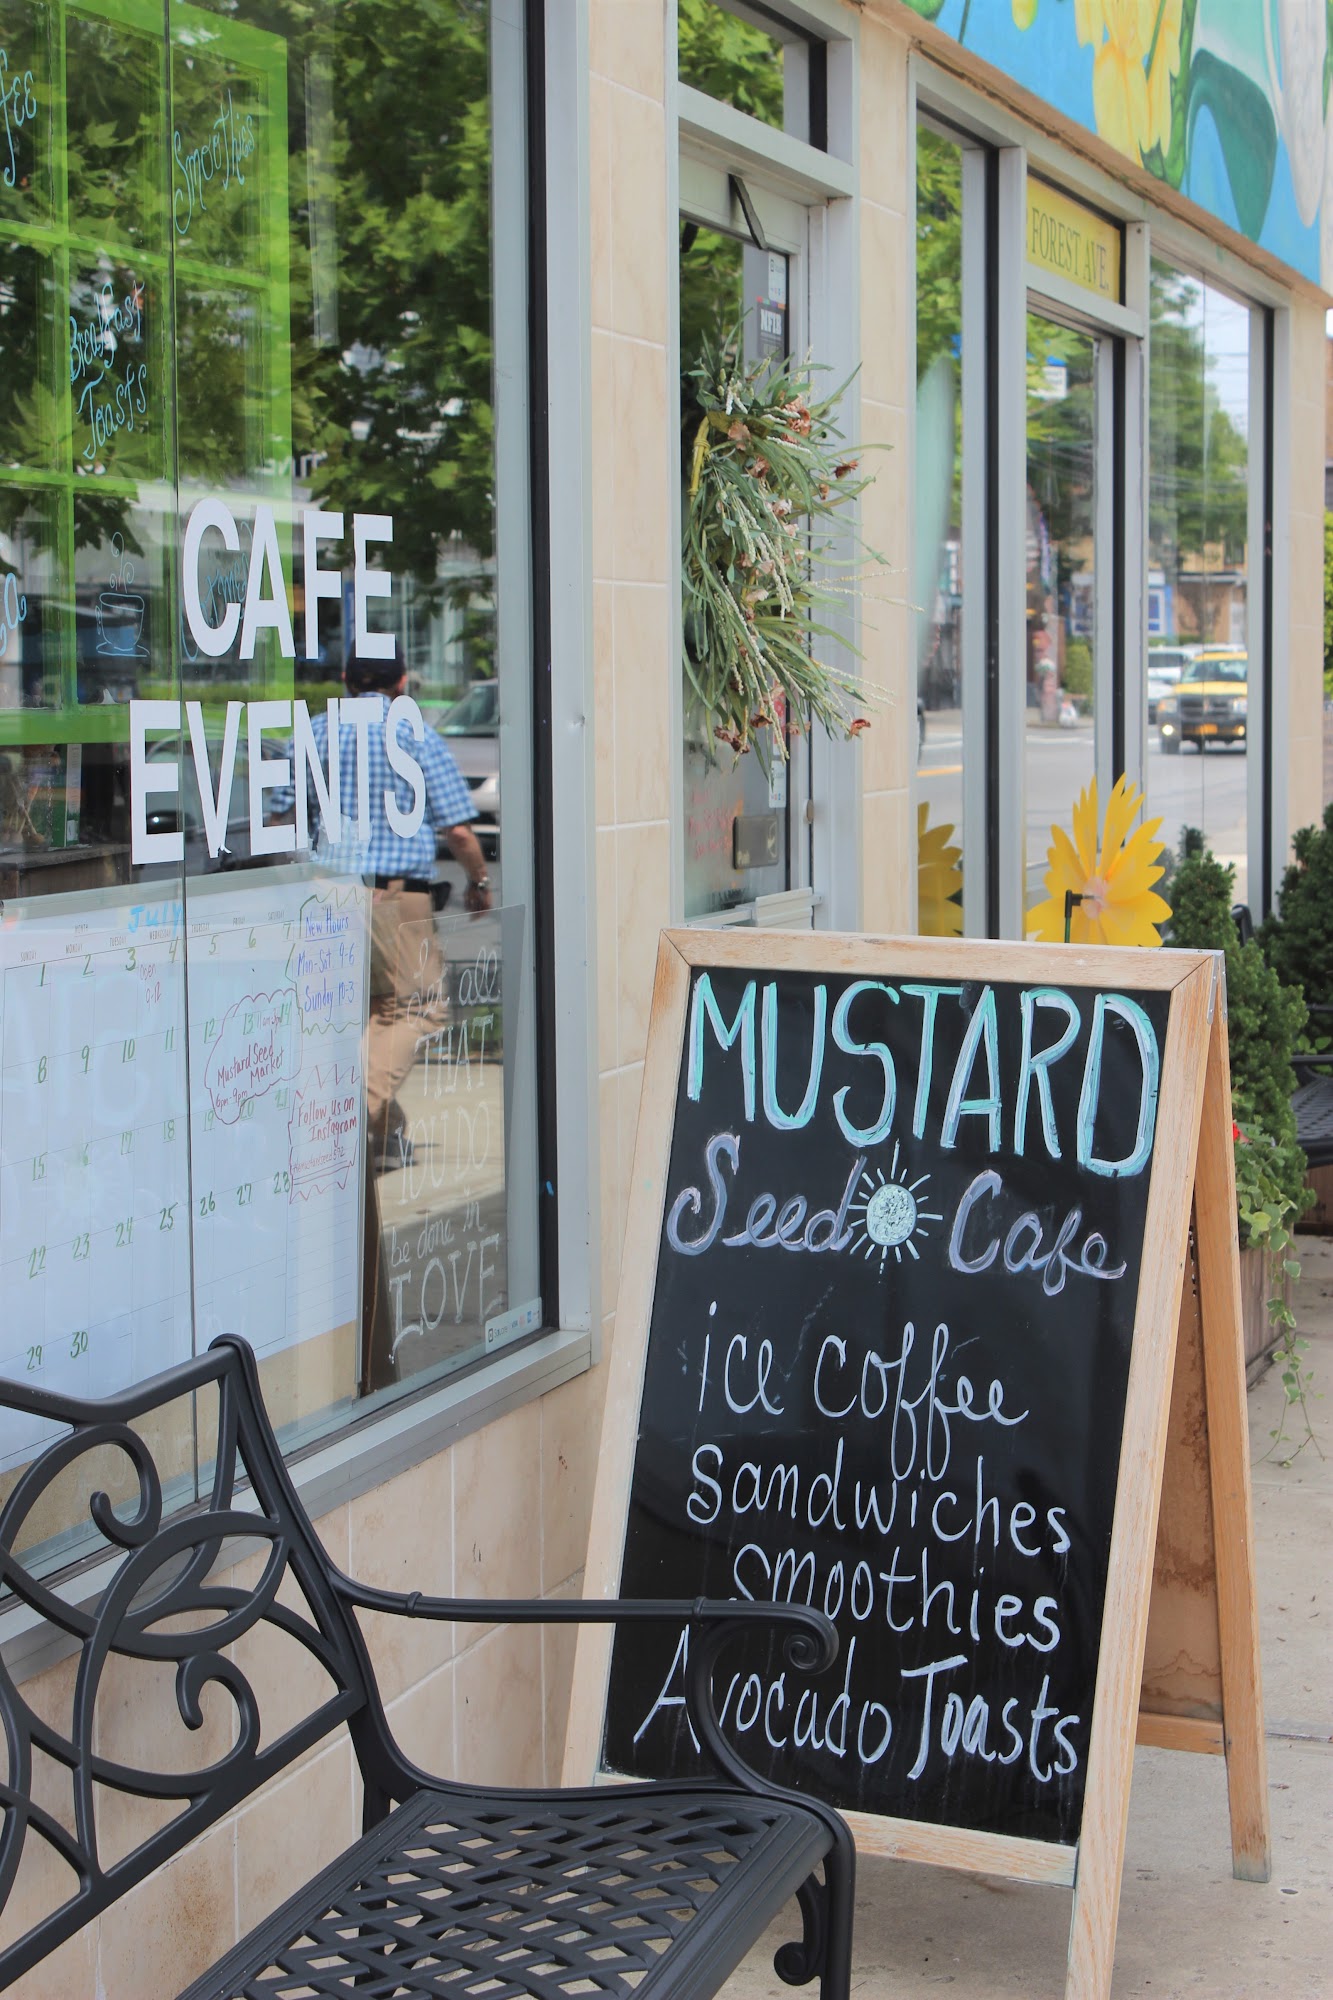 Smoothies
Breakfast
Toasts
CAFE
EVENTS
FOREST AVE.
NFIB
July
SUNDAY MONDAY TUESDAY WEDNESDAY THURSDAY FRIDAY SATURDAY
1 2 3 4 5 6 7
open
9-12
8 9 10 11 12 13 14
15 17 18 19 20 21
22 23 24 25 26 27 28
29 30
New Hours
Mon-Sat 9-6
Sunday 10-3
Mustard Seed
Market
6pm-9pm
Follow us on
Instagram
Let all
THAT
YOU DO
be done in
LOVE
MUSTARD
Seed Cafe
ice coffee
sandwiches
smoothies
Avocado Toasts